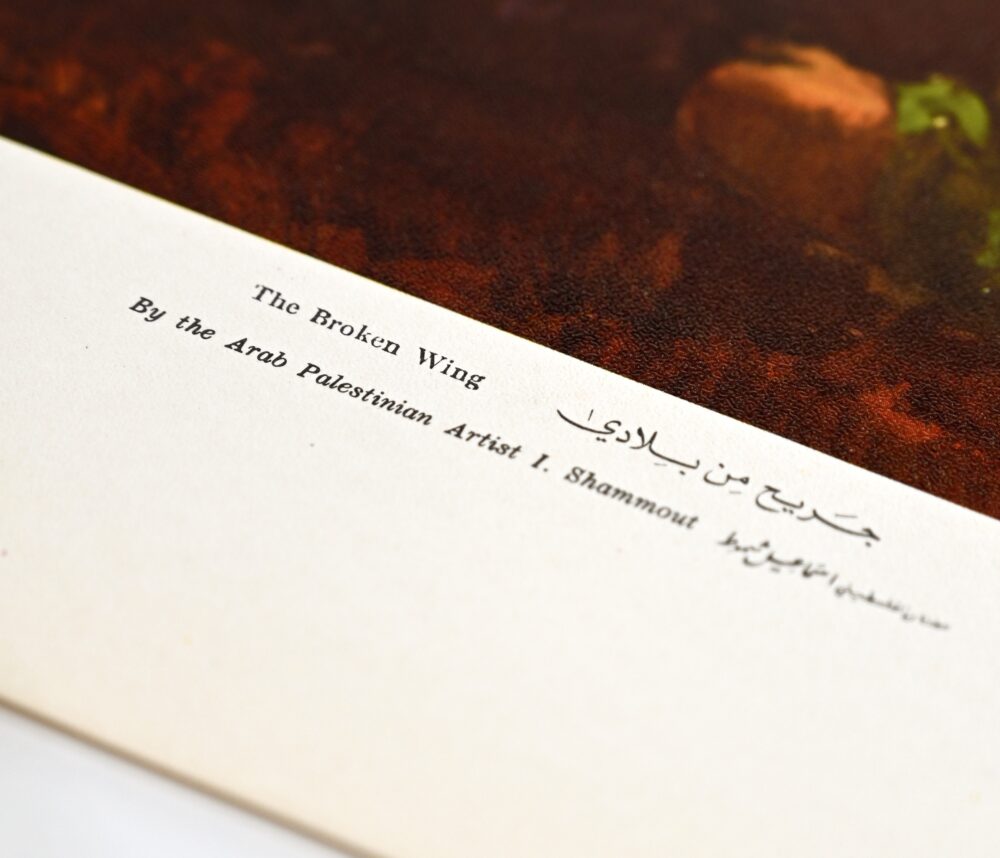 The Broken Wing
By the Arab Palestinian Artist I. Shammout
جَريح مِن بِلادي
الفلسطيني اسماعيل شموط